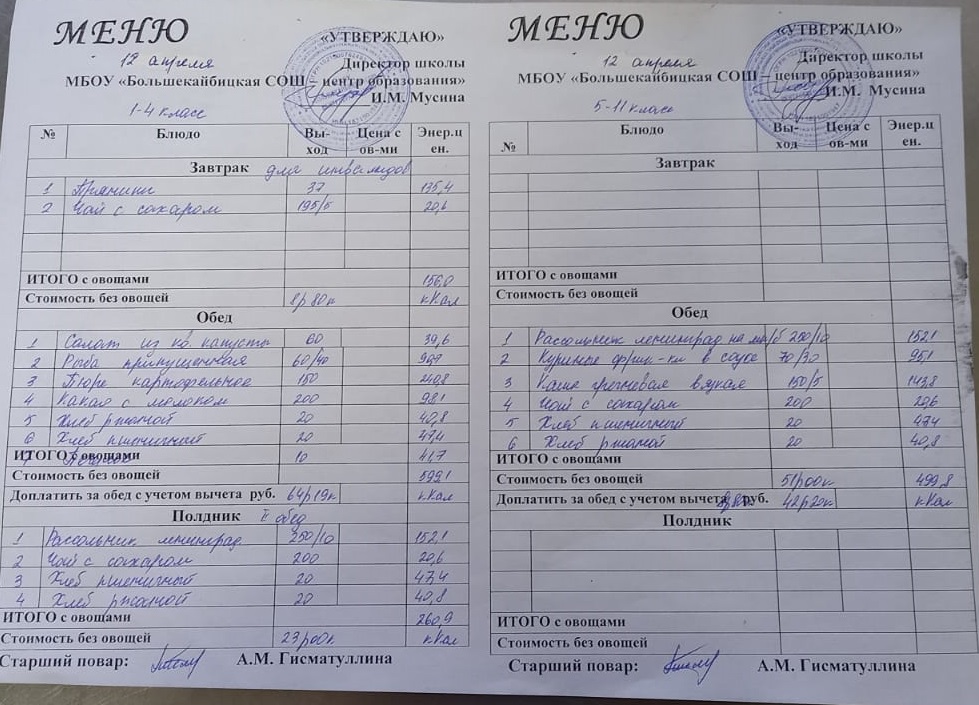 МЕНЮ
«УТВЕРЖДАЮ»
12 апреля
Директор школы
МБОУ «Большекайбицкая СОШ – центр образования»
И.М. Мусина
1-4 класс
№ Блюдо Вы-ход Цена с ов-ми Энер.ц ен.
Завтрак для инвалидов
1 Пряники 37 135,4
2 Чай с сахаром 195/5 20,6
ИТОГО с овощами 156,0
Стоимость без овощей 8р80к кКал
Обед
1 Салат из кв капусты 60 39,6
2 Рыба припущенная 60/40
3 Пюре картофельное 150 240,8
4 Какао с молоком 200 98,1
5 Хлеб ржаной 20 40,8
6 Хлеб пшеничный 20 47,4
ИТОГО с овощами 10 41,7
Стоимость без овощей 599,1
Доплатить за обед с учетом вычета руб. 64р19к кКал
Полдник II обед
1 Рассольник ленинград. 250/10 152,1
2 Чай с сахаром 200 20,6
3 Хлеб пшеничный 20 47,4
4 Хлеб ржаной 20 40,8
ИТОГО с овощами 260,9
Стоимость без овощей 23р00к кКал
Старший повар: А.М. Гисматуллина
МЕНЮ
«УТВЕРЖДАЮ»
12 апреля
Директор школы
МБОУ «Большекайбицкая СОШ – центр образования»
И.М. Мусина
5-11 класс
№ Блюдо Вы-ход Цена с ов-ми Энер.ц ен.
Завтрак
ИТОГО с овощами
Стоимость без овощей
Обед
1 Рассольник ленинград на м/б 250/10 152,1
2 Куриные фрик-ки в соусе 70/30 95,1
3 Каша гречневая вязкая 150/5 143,8
4 Чай с сахаром 200 20,6
5 Хлеб пшеничный 20 47,4
6 Хлеб ржаной 20 40,8
ИТОГО с овощами
Стоимость без овощей 51р00к 499,8
Доплатить за обед с учетом вычета руб. 42р20к кКал
Полдник
ИТОГО с овощами
Стоимость без овощей
Старший повар: А.М. Гисматуллина